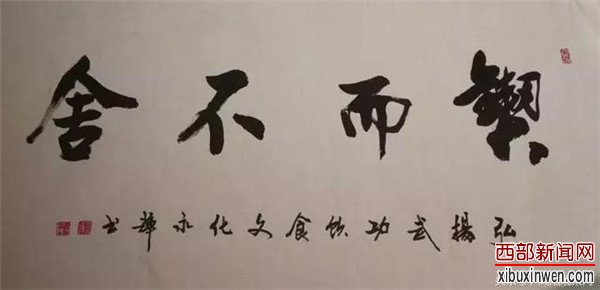 鍥而不舍
弘揚武功饮食文化永 书
西部新闻网
xibuxinwen.com